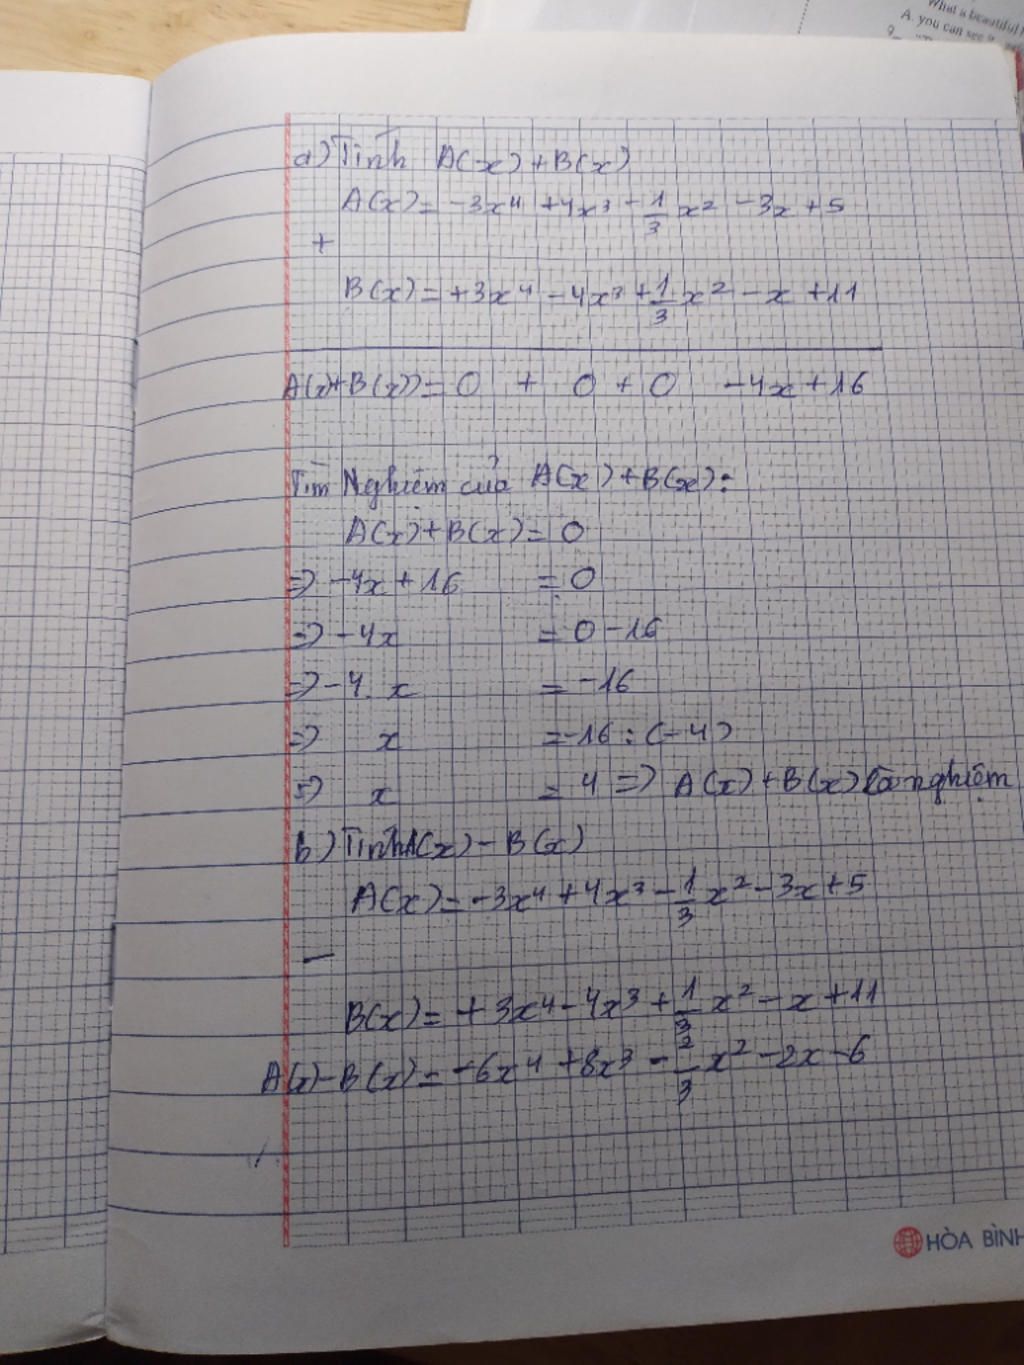 What a beautiful
A. you can see it
a) Tính A(x)+B(x)
A(x)= -3x⁴ +4x³ - 1/3 x² -3x +5
+
B(x)= +3x⁴ -4x³ + 1/3 x² -x +11
A(x)+B(x))= 0 + 0 + 0 -4x+16
Tìm Nghiệm của A(x)+B(x):
A(x)+B(x)= 0
=> -4x+16 = 0
=> -4x = 0-16
=> -4. x = -16
=> x = -16:(-4)
=> x = 4 => A(x)+B(x) là nghiệm
b) Tính A(x)-B(x)
A(x)= -3x⁴ +4x³ - 1/3 x² -3x+5
—
B(x)= +3x⁴ -4x³ + 1/3 x² -x +11
A(x)-B(x)= -6x⁴ +8x³ - 2/3 x² -2x -6
HÒA BÌNH